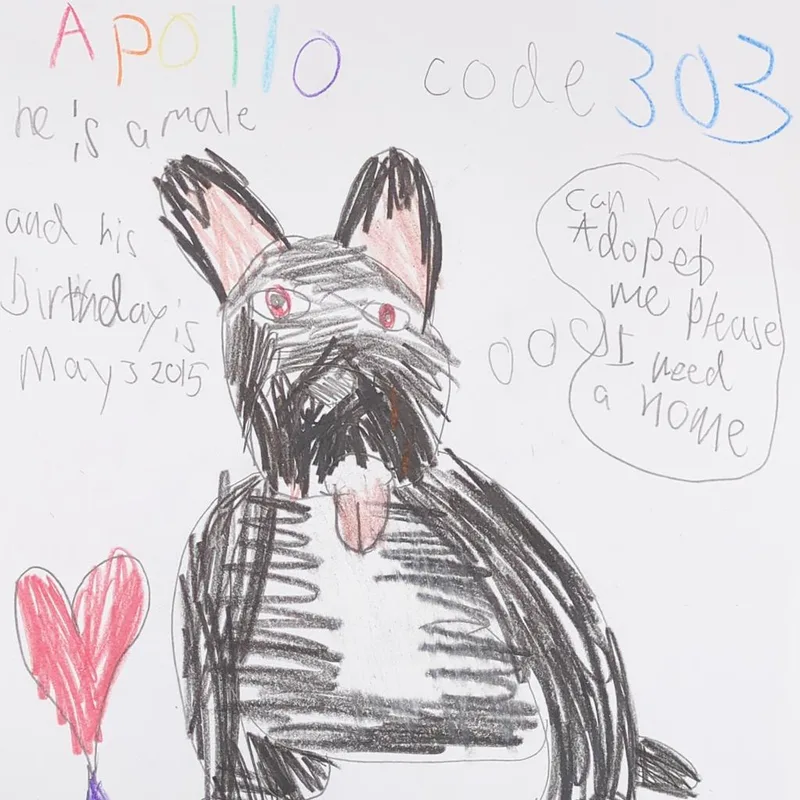 APOllO
code 303
he is a male
and his
birthday is
May 3 2015
can you
Adopet
me please
I need
a home